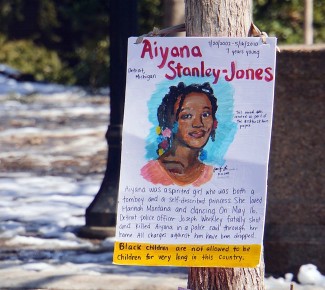 Aiyana
Stanley-Jones
7 years young
Detroit,
Michigan
Aiyana was a spirited girl who was both a
tomboy and a self-described princess. She loved
Hannah Montana and dancing. On May 16,
Detroit police officer Joseph Weekley fatally shot
and killed Aiyana in a police raid through her
home. All charges against him have been dropped.
Black children are not allowed to be
children for very long in this country.